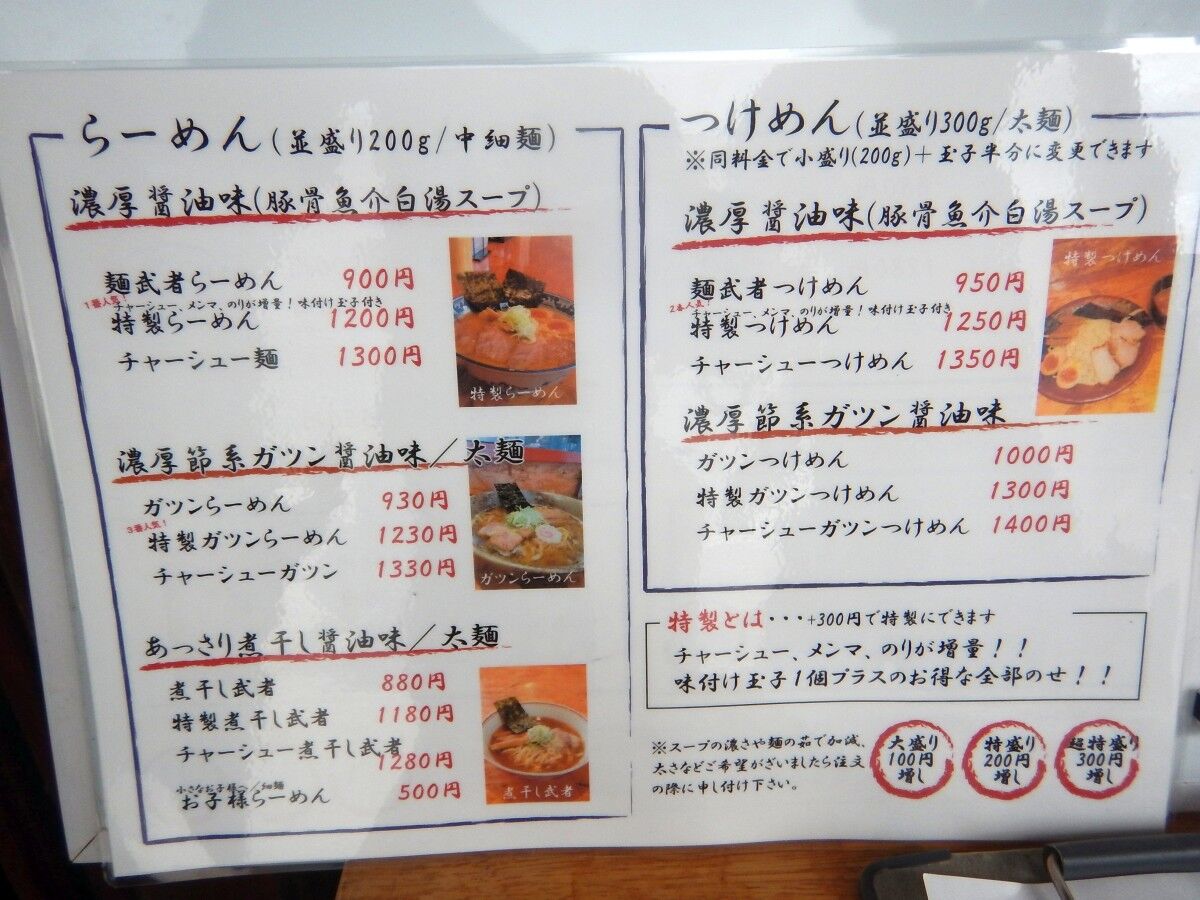 らーめん(並盛り200g/中細麺)
濃厚醤油味(豚骨魚介白湯スープ)
麺武者らーめん 900円
1番人気! チャーシュー、メンマ、のりが増量!味付け玉子付き
特製らーめん 1200円
チャーシュー麺 1300円
特製らーめん
濃厚節系ガツン醤油味/太麺
ガツンらーめん 930円
3番人気!
特製ガツンらーめん 1230円
チャーシューガツン 1330円
ガツンらーめん
あっさり煮干し醤油味/太麺
煮干し武者 880円
特製煮干し武者 1180円
チャーシュー煮干し武者 1280円
小さなお子様へ/細麺
お子様らーめん 500円
煮干し武者
つけめん(並盛り300g/太麺)
※同料金で小盛り(200g)+玉子半分に変更できます
濃厚醤油味(豚骨魚介白湯スープ)
特製つけめん
麺武者つけめん 950円
2番人気! チャーシュー、メンマ、のりが増量!味付け玉子付き
特製つけめん 1250円
チャーシューつけめん 1350円
濃厚節系ガツン醤油味
ガツンつけめん 1000円
特製ガツンつけめん 1300円
チャーシューガツンつけめん 1400円
特製とは・・・+300円で特製にできます
チャーシュー、メンマ、のりが増量!!
味付け玉子1個プラスのお得な全部のせ!!
※スープの濃さや麺の茹で加減、
太さなどご希望がございましたら注文
の際に申し付け下さい。
大盛り
100円
増し
特盛り
200円
増し
超特盛り
300円
増し